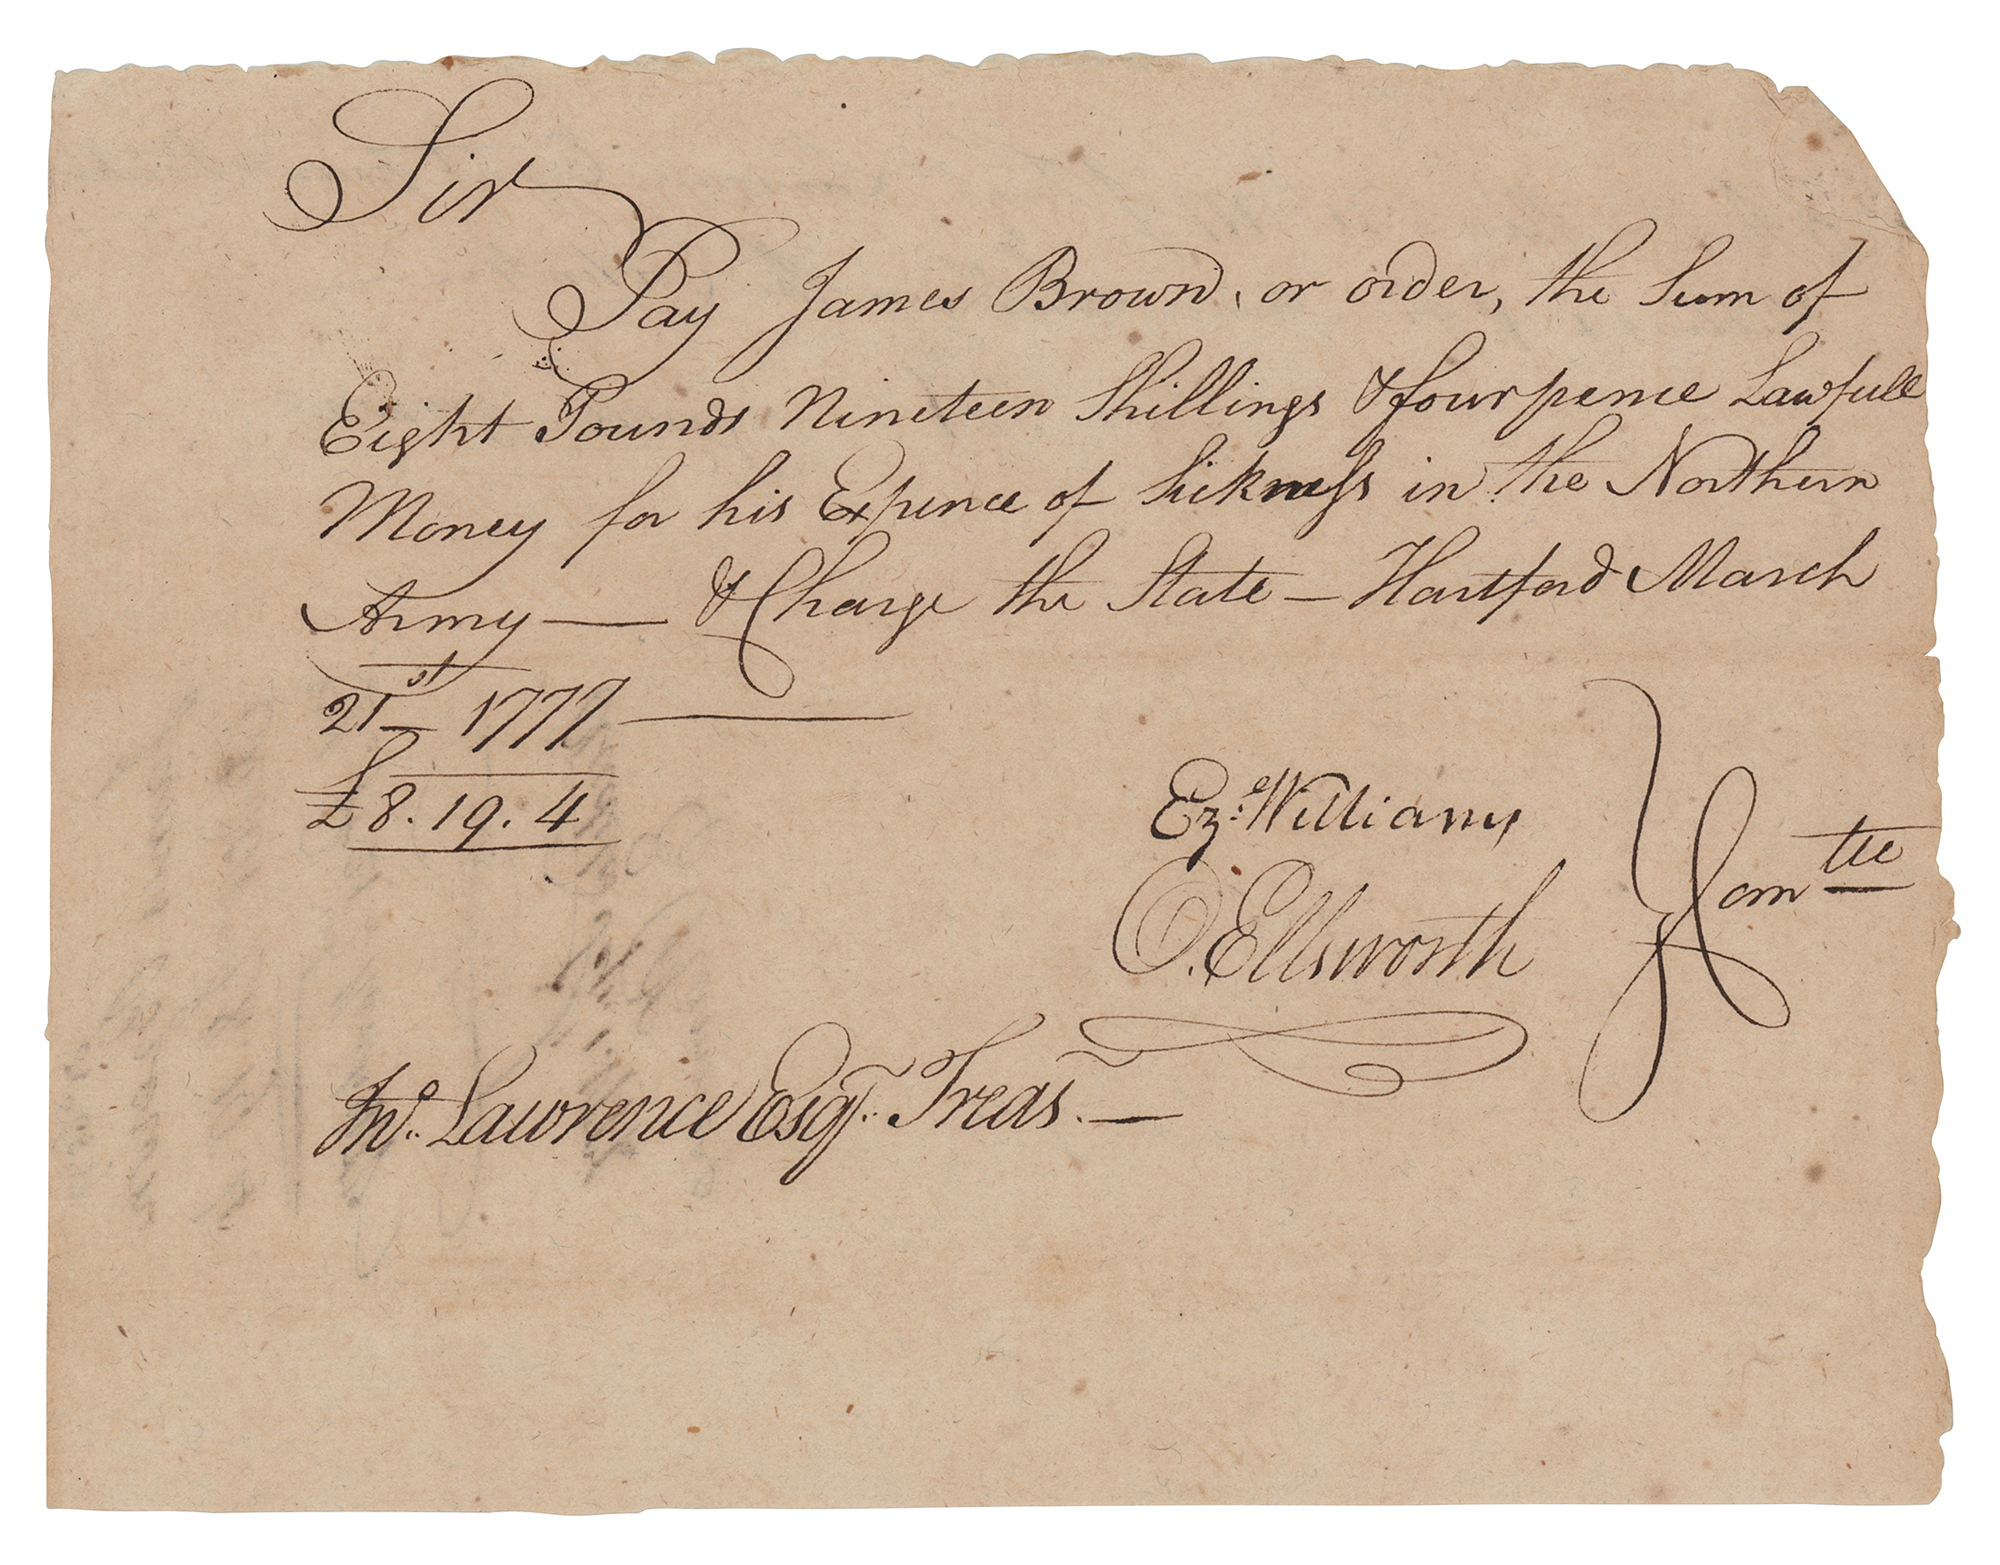 Sir
Pay James Brown, or order, the Sum of
Eight Pounds Nineteen Shillings & fourpence Lawfull
Money for his Expence of Sickness in the Northern
Army — & Charge the State — Hartford March
21st 1777 —
£8.19.4
Eze Williams
O. Ellsworth
Comtee
Jno. Lawrence Esqr. Treasr. —